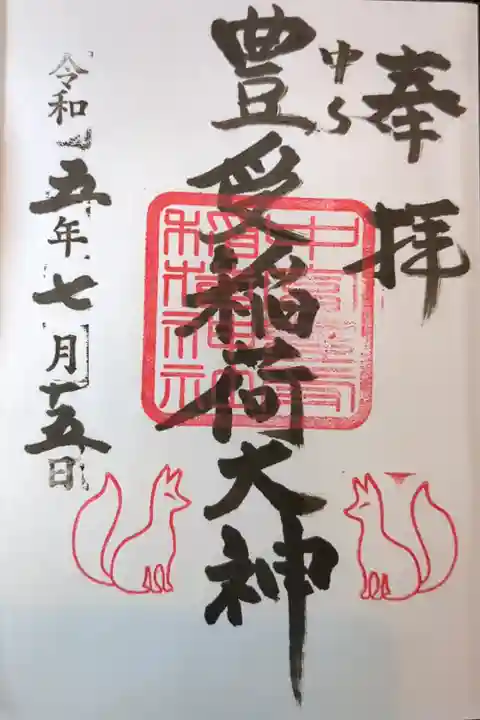 奉拝
豊受稲荷大神
令和五年七月十五日